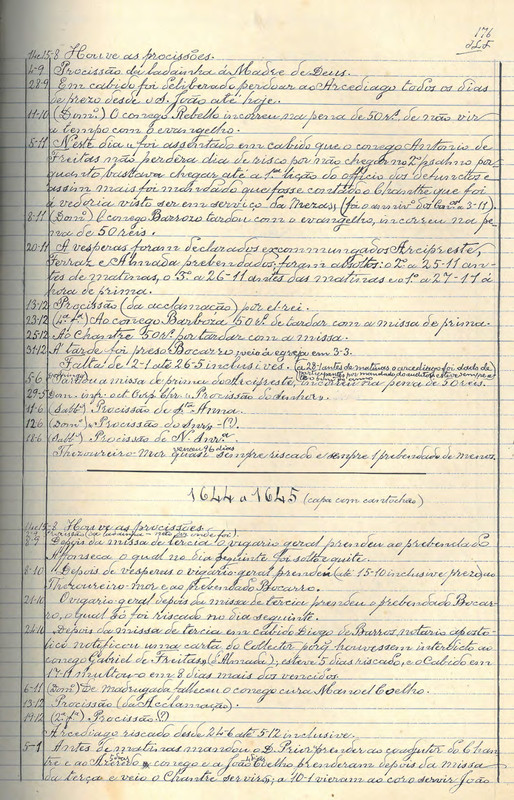 176
14e15-8 Houve as procissões.
4-9 Procissão da ladainha á Madre de Deus.
28-9 Em cabido foi deliberado perdoar ao Arcediago todos os dias
de prezo desde o S. João até hoje.
11-10 (Dom.º) O conego Rebello incorreu na pena de 50 rs. de não vir
a tempo com o evangelho.
5-11 Neste dia foi assentado em cabido que o conego Antonio de
Freitas não perdera dia de risco por não chegar no 2º psalmo por
quanto bastava chegar até a 1ª lição do officio dos defunctos e
assim mais foi mandado que fosse contado o Chantre que foi
á vedoria visto ser em serviço da Meza,
8-11 (Domº) O conego Barrozo tardou com o evangelho, incorreu na pe-
na de 50 reis.
20-11 A vesperas foram declarados excommungados Arcipreste,
Ferraz e Almada prebendados; foram absoltos: o 2º a 25-11 an-
tes de matinas, o 3º a 26-11 antes das matinas e o 1º a 27-11 á
hora de prima.
13-12 Procissão (da acclamação) por el-rei.
23-12 (4ª fª) Ao conego Barboza 50 rs. de tardar com a missa de prima.
25-12 Ao Chantre 50 rs. por tardar com a missa.
31-12 A tarde foi preso Bocarro, veio á egreja em 3-3.
Falta: de 2-1 até 26-5 inclusives.
5-6 Tardou a missa de prima do Arcipreste, incorreu na pena de 50 reis.
29-5 Procissão do Senhor
11-6 (Sabbº) Procissão de Stª Anna.
12-6 (Domº) Procissão do
18-6 (Sabbº) Procissão de N. Snrª
venceu 96 dias
Thezoureiro-Mor quasi sempre riscado e sempre 1 prebendado de menos.
1644 a 1645 (capa com cantochão)
14e15-8 Houve as procissões.
Procissão (da ladainha - não diz onde foi).
Depois da missa de tercia o vigario geral prendeu ao prebendado
Affonseca o qual no dia seguinte foi solto e quite.
8-10 Depois de vesperas o vigario geral prendeu (até 15-10 inclusive prezo) ao
Thezoureiro-mor e ao prebendado Bocarro.
21-10 O vigario geral depois da missa de tercia prendeu o prebendado Bocar-
ro, o qual foi riscado no dia seguinte.
24-10 Depois da missa de tercia em cabido Diogo de Barros, notario aposto-
lico notificou uma carta do Collector porq houvessem interdicto ao
conego Gabriel de Freitas, (d'Almada); esteve 5 dias riscado, e o Cabido em
17-11 multou-o em 8 dias mais dos vencidos.
6-11 (Domº) De madrugada falleceu o conego cura Manoel Coelho.
13-12 Procissão (da Acclamação).
19-12 (2ª fª) Procissão (?)
Arcediago riscado desde 24-6 até 5-12 inclusive.
5-1 Antes de matinas mandou o D. Prior prender ao coadjutor do Chan-
tre e ao conego e a João Coelho prenderam depois da missa
da terça e veio o Chantre servir; a 10-1 vieram ao coro servir João